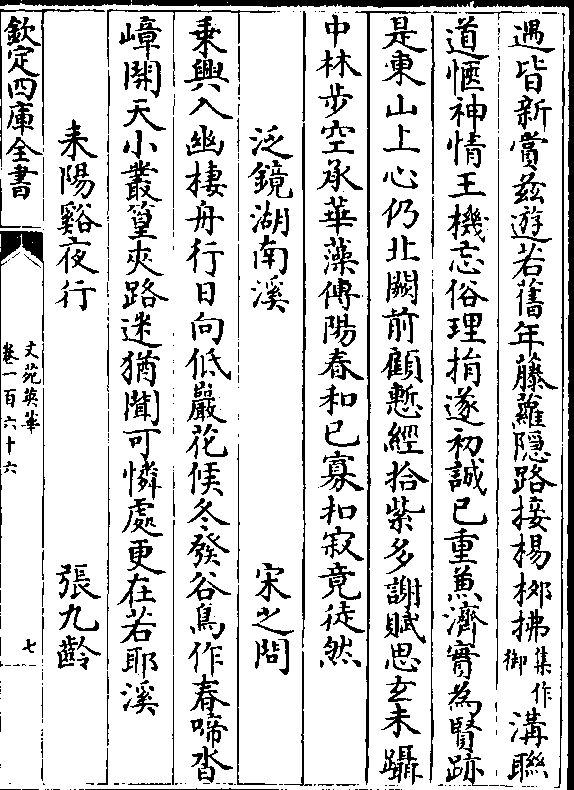 遇皆新賞兹遊若舊年藤蘿隠路接楊桞拂集作御溝聯
道愜神情王機忘俗理捐遂初誠已重兼濟實為賢跡
是東山上心仍北闕前顧慙經拾紫多謝賦思𤣥未躡
中林步空承華藻傳陽春和已寡扣寂竟徒然
泛鏡湖南溪 宋之問
乗興入幽棲舟行日向低巖花候冬發谷鳥作春啼沓
嶂開天小叢篁夾路迷猶聞可憐處更在若耶溪
耒陽谿夜行 張九齡
欽定四庫全書
文苑英華
卷一百六十六
七